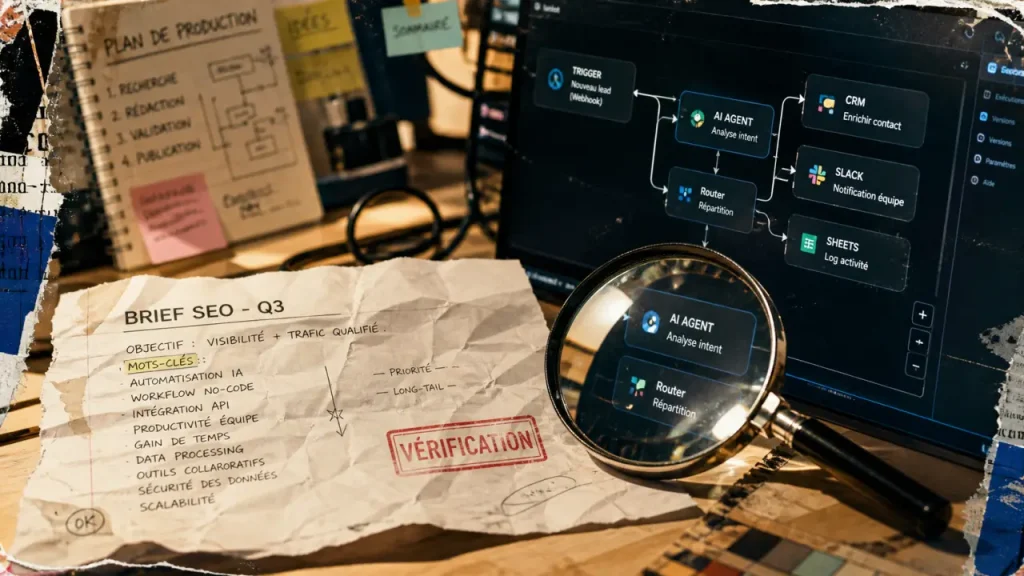 PLAN DE PRODUCTION
1. RECHERCHE
2. RÉDACTION
3. VALIDATION
4. PUBLICATION
IDÉES
SOMMAIRE
BRIEF SEO - Q3
OBJECTIF : VISIBILITÉ + TRAFIC QUALIFIÉ
MOTS-CLÉS :
AUTOMATISATION IA
WORKFLOW NO-CODE
· INTÉGRATION API
· PRODUCTIVITÉ ÉQUIPE
· GAIN DE TEMPS
· DATA PROCESSING
· OUTILS COLLARORATIFS
· SÉCURITÉ DES DONNÉES
· SCALABILITÉ
— PRIORITÉ — —
— LONG-TAIL — —
VÉRIFICATION
OK
TRIGGER
Nouveau lead
(Webhook)
AI AGENT
Analyse intent
Router
Répartition
CRM
Enrichir contact
SLACK
Notification équipe
SHEETS
Log activité
AI AGENT
Analyse intent
Router
Répartition
Versions
Versions
Paramètres
Aide
+
−